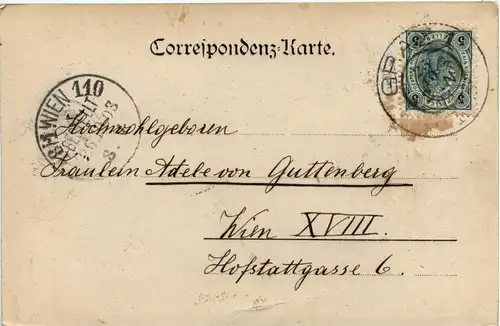 Correspondenz-Karte.
5 5
GRAZ
WIEN 110
Hochwohlgeboren
Fräulein Adele von Guttenberg
Wien XVIII.
Hofstattgasse 6.